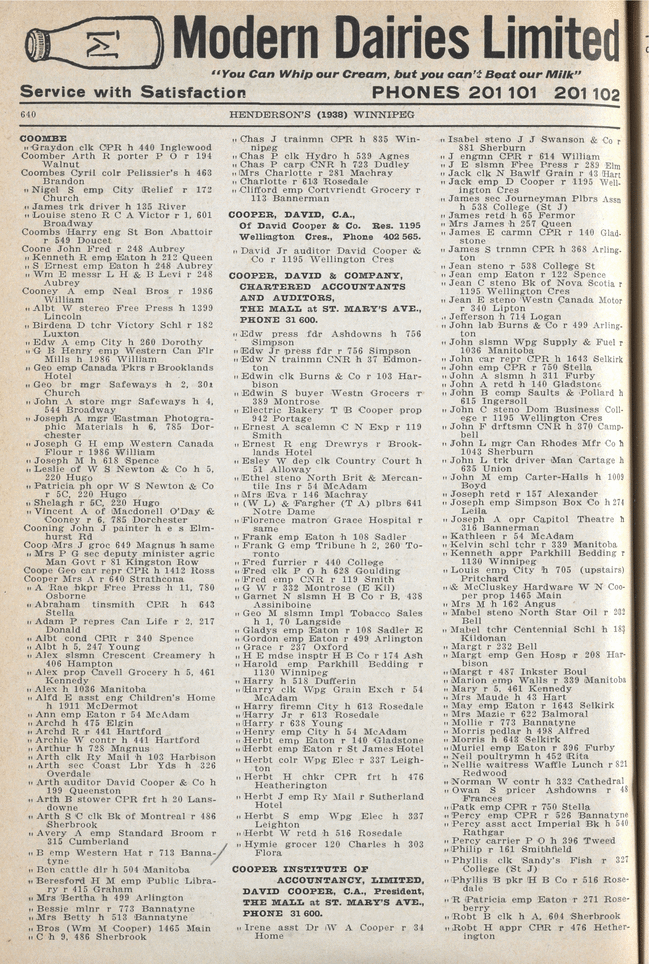 M
Modern Dairies Limited
"You Can Whip our Cream, but you can't Beat our Milk"
Service with Satisfaction PHONES 201 101 201 102
640 HENDERSON'S (1938) WINNIPEG
COOMBE
" Graydon clk CPR h 440 Inglewood
Coomber Arth R porter P O r 194
Walnut
Coombes Cyril colr Pelissier's h 463
Brandon
" Nigel S emp City Relief r 172
Church
" James trk driver h 135 River
" Louise steno R C A Victor r 1, 601
Broadway
Coombs Harry eng St Bon Abattoir
r 549 Doucet
Coone John Fred r 248 Aubrey
" Kenneth R emp Eaton h 212 Queen
" S Ernest emp Eaton h 248 Aubrey
" Wm E messr L H & B Levi r 248
Aubrey
Cooney A emp Neal Bros r 1986
William
" Albt W stereo Free Press h 1399
Lincoln
" Birdena D tchr Victory Schl r 182
Luxton
" Edw A emp City h 260 Dorothy
" G B Henry emp Western Can Flr
Mills h 1986 William
" Geo emp Canada Pkrs r Brooklands
Hotel
" Geo br mgr Safeways h 2, 301
Church
" John A store mgr Safeways h 4,
544 Broadway
" Joseph A mgr Eastman Photogra-
phic Materials h 6, 785 Dor-
chester
" Joseph G H emp Western Canada
Flour r 1986 William
" Joseph M h 618 Spence
" Leslie of W S Newton & Co h 5,
220 Hugo
" Patricia ph opr W S Newton & Co
r 5C, 220 Hugo
" Shelagh r 5C, 220 Hugo
" Vincent A of Macdonell O'Day &
Cooney r 6, 785 Dorchester
Cooning John J painter h e s Elm-
hurst Rd
Coop Mrs J groc 649 Magnus h same
" Mrs P G sec deputy minister agric
Man Govt r 81 Kingston Row
Coope Geo car repr CPR h 1412 Ross
Cooper Mrs A r 640 Strathcona
" A Rae bkpr Free Press h 11, 780
Osborne
" Abraham tinsmith CPR h 643
Stella
" Adam P repres Can Life r 2, 217
Donald
" Albt cond CPR r 340 Spence
" Albt h 5, 247 Young
" Alex slsmn Crescent Creamery h
406 Hampton
" Alex prop Cavell Grocery h 5, 461
Kennedy
" Alex h 1036 Manitoba
" Alfd E asst eng Children's Home
h 1911 McDermot
" Ann emp Eaton r 54 McAdam
" Archd h 475 Elgin
" Archd R r 441 Hartford
" Archie W contr h 441 Hartford
" Arthur h 728 Magnus
" Arth clk Ry Mail h 103 Harbison
" Arth sec Coast Lbr Yds h 326
Overdale
" Arth auditor David Cooper & Co h
199 Queenston
" Arth B stower CPR frt h 20 Lans-
downe
" Arth S C clk Bk of Montreal r 486
Sherbrook
" Avery A emp Standard Broom r
315 Cumberland
" B emp Western Hat r 713 Banna-
tyne
" Ben cattle dlr h 504 Manitoba
" Beresford H M emp Public Libra-
ry r 415 Graham
" Mrs Bertha h 499 Arlington
" Bessie mlnr r 773 Bannatyne
" Mrs Betty h 513 Bannatyne
" Bros (Wm M Cooper) 1465 Main
" C h 9, 486 Sherbrook
" Chas J trainmn CPR h 835 Win-
nipeg
" Chas P clk Hydro h 539 Agnes
" Chas P carp CNR h 723 Dudley
" Mrs Charlotte r 281 Machray
" Charlotte r 613 Rosedale
" Clifford emp Cortvriendt Grocery r
113 Bannerman
COOPER, DAVID, C.A.,
Of David Cooper & Co. Res. 1195
Wellington Cres., Phone 402 565.
" David Jr auditor David Cooper &
Co r 1195 Wellington Cres
COOPER, DAVID & COMPANY,
CHARTERED ACCOUNTANTS
AND AUDITORS,
THE MALL at ST. MARY'S AVE.,
PHONE 31 600.
" Edw press fdr Ashdowns h 756
Simpson
" Edw Jr press fdr r 756 Simpson
" Edw N trainmn CNR h 37 Edmon-
ton
" Edwin clk Burns & Co r 103 Har-
bison
" Edwin S buyer Westn Grocers r
389 Montrose
" Electric Bakery T B Cooper prop
942 Portage
" Ernest A scalemn C N Exp r 119
Smith
" Ernest R eng Drewrys r Brook-
lands Hotel
" Esley W dep clk Country Court h
51 Alloway
" Ethel steno North Brit & Mercan-
tile Ins r 54 McAdam
" Mrs Eva r 146 Machray
" (W L) & Fargher (T A) plbrs 641
Notre Dame
" Florence matron Grace Hospital r
same
" Frank emp Eaton h 108 Sadler
" Frank G emp Tribune h 2, 260 To-
ronto
" Fred furrier r 440 College
" Fred clk P O h 628 Goulding
" Fred emp CNR r 119 Smith
" G W r 332 Montrose (E Kil)
" Garnet N slsmn H B Co r B, 438
Assiniboine
" Geo M slsmn Impl Tobacco Sales
h 1, 70 Langside
" Gladys emp Eaton r 108 Sadler E
" Gordon emp Eaton r 499 Arlington
" Grace r 237 Oxford
" H E mdse insptr H B Co r 174 Ash
" Harold emp Parkhill Bedding r
1130 Winnipeg
" Harry h 518 Dufferin
" Harry clk Wpg Grain Exch r 54
McAdam
" Harry firemn City h 613 Rosedale
" Harry Jr r 613 Rosedale
" Harry r 638 Young
" Henry emp City h 54 McAdam
" Herbt emp Eaton r 140 Gladstone
" Herbt emp Eaton r St James Hotel
" Herbt colr Wpg Elec r 337 Leigh-
ton
" Herbt H chkr CPR frt h 476
Heatherington
" Herbt J emp Ry Mail r Sutherland
Hotel
" Herbt S emp Wpg Elec h 337
Leighton
" Herbt W retd h 516 Rosedale
" Hymie grocer 120 Charles h 303
Flora
COOPER INSTITUTE OF
ACCOUNTANCY, LIMITED,
DAVID COOPER, C.A., President,
THE MALL at ST. MARY'S AVE.,
PHONE 31 600.
" Irene asst Dr W A Cooper r 34
Home
" Isabel steno J J Swanson & Co r
881 Sherburn
" J engmn CPR r 614 William
" J E slsmn Free Press r 289 Elm
" Jack clk N Bawlf Grain r 43 Hart
" Jack emp D Cooper r 1195 Well-
ington Cres
" James sec Journeyman Plbrs Assn
h 538 College (St J)
" James retd h 65 Fermor
" Mrs James h 257 Queen
" James E carmn CPR r 140 Glad-
stone
" James S trnmn CPR h 368 Arling-
ton
" Jean steno r 538 College St
" Jean emp Eaton r 122 Spence
" Jean C steno Bk of Nova Scotia r
1195 Wellington Cres
" Jean E steno Westn Canada Motor
r 340 Lipton
" Jefferson h 714 Logan
" John lab Burns & Co r 499 Arling-
ton
" John slsmn Wpg Supply & Fuel r
1036 Manitoba
" John car repr CPR h 1643 Selkirk
" John emp CPR r 750 Stella
" John A slsmn h 311 Furby
" John A retd h 140 Gladstone
" John B comp Saults & Pollard h
615 Ingersoll
" John C steno Dom Business Coll-
ege r 1195 Wellington Cres
" John F drftsmn CNR h 370 Camp-
bell
" John L mgr Can Rhodes Mfr Co h
1043 Sherburn
" John L trk driver Man Cartage h
635 Union
" John M emp Carter-Halls h 1009
Boyd
" Joseph retd r 157 Alexander
" Joseph emp Simpson Box Co h 274
Leila
" Joseph A opr Capitol Theatre h
316 Bannerman
" Kathleen r 54 McAdam
" Kelvin schl tchr r 339 Manitoba
" Kenneth appr Parkhill Bedding r
1130 Winnipeg
" Louis emp City h 705 (upstairs)
Pritchard
" & McCluskey Hardware W N Coo-
per prop 1465 Main
" Mrs M h 162 Angus
" Mabel steno North Star Oil r 232
Bell
" Mabel tchr Centennial Schl h 187
Kildonan
" Margt r 232 Bell
" Margt emp Gen Hosp r 208 Har-
bison
" Margt r 487 Inkster Boul
" Marion emp Walls r 339 Manitoba
" Mary r 5, 461 Kennedy
" Mrs Maude h 43 Hart
" May emp Eaton r 1643 Selkirk
" Mrs Mazie r 622 Balmoral
" Mollie r 773 Bannatyne
" Morris pedlar h 498 Alfred
" Morris h 643 Selkirk
" Muriel emp Eaton r 396 Furby
" Neil poultrymn h 452 Rita
" Nellie waitress Waffle Lunch r 821
Redwood
" Norman W contr h 332 Cathedral
" Owan S pricer Ashdowns r 48
Frances
" Patk emp CPR r 750 Stella
" Percy emp CPR r 526 Bannatyne
" Percy asst acct Imperial Bk h 540
Rathgar
" Percy carrier P O h 396 Tweed
" Philip r 161 Smithfield
" Phyllis clk Sandy's Fish r 327
College (St J)
" Phyllis B pkr H B Co r 516 Rose-
dale
" R Patricia emp Eaton r 271 Rose-
berry
" Robt B clk h A, 604 Sherbrook
" Robt H appr CPR r 476 Hether-
ington